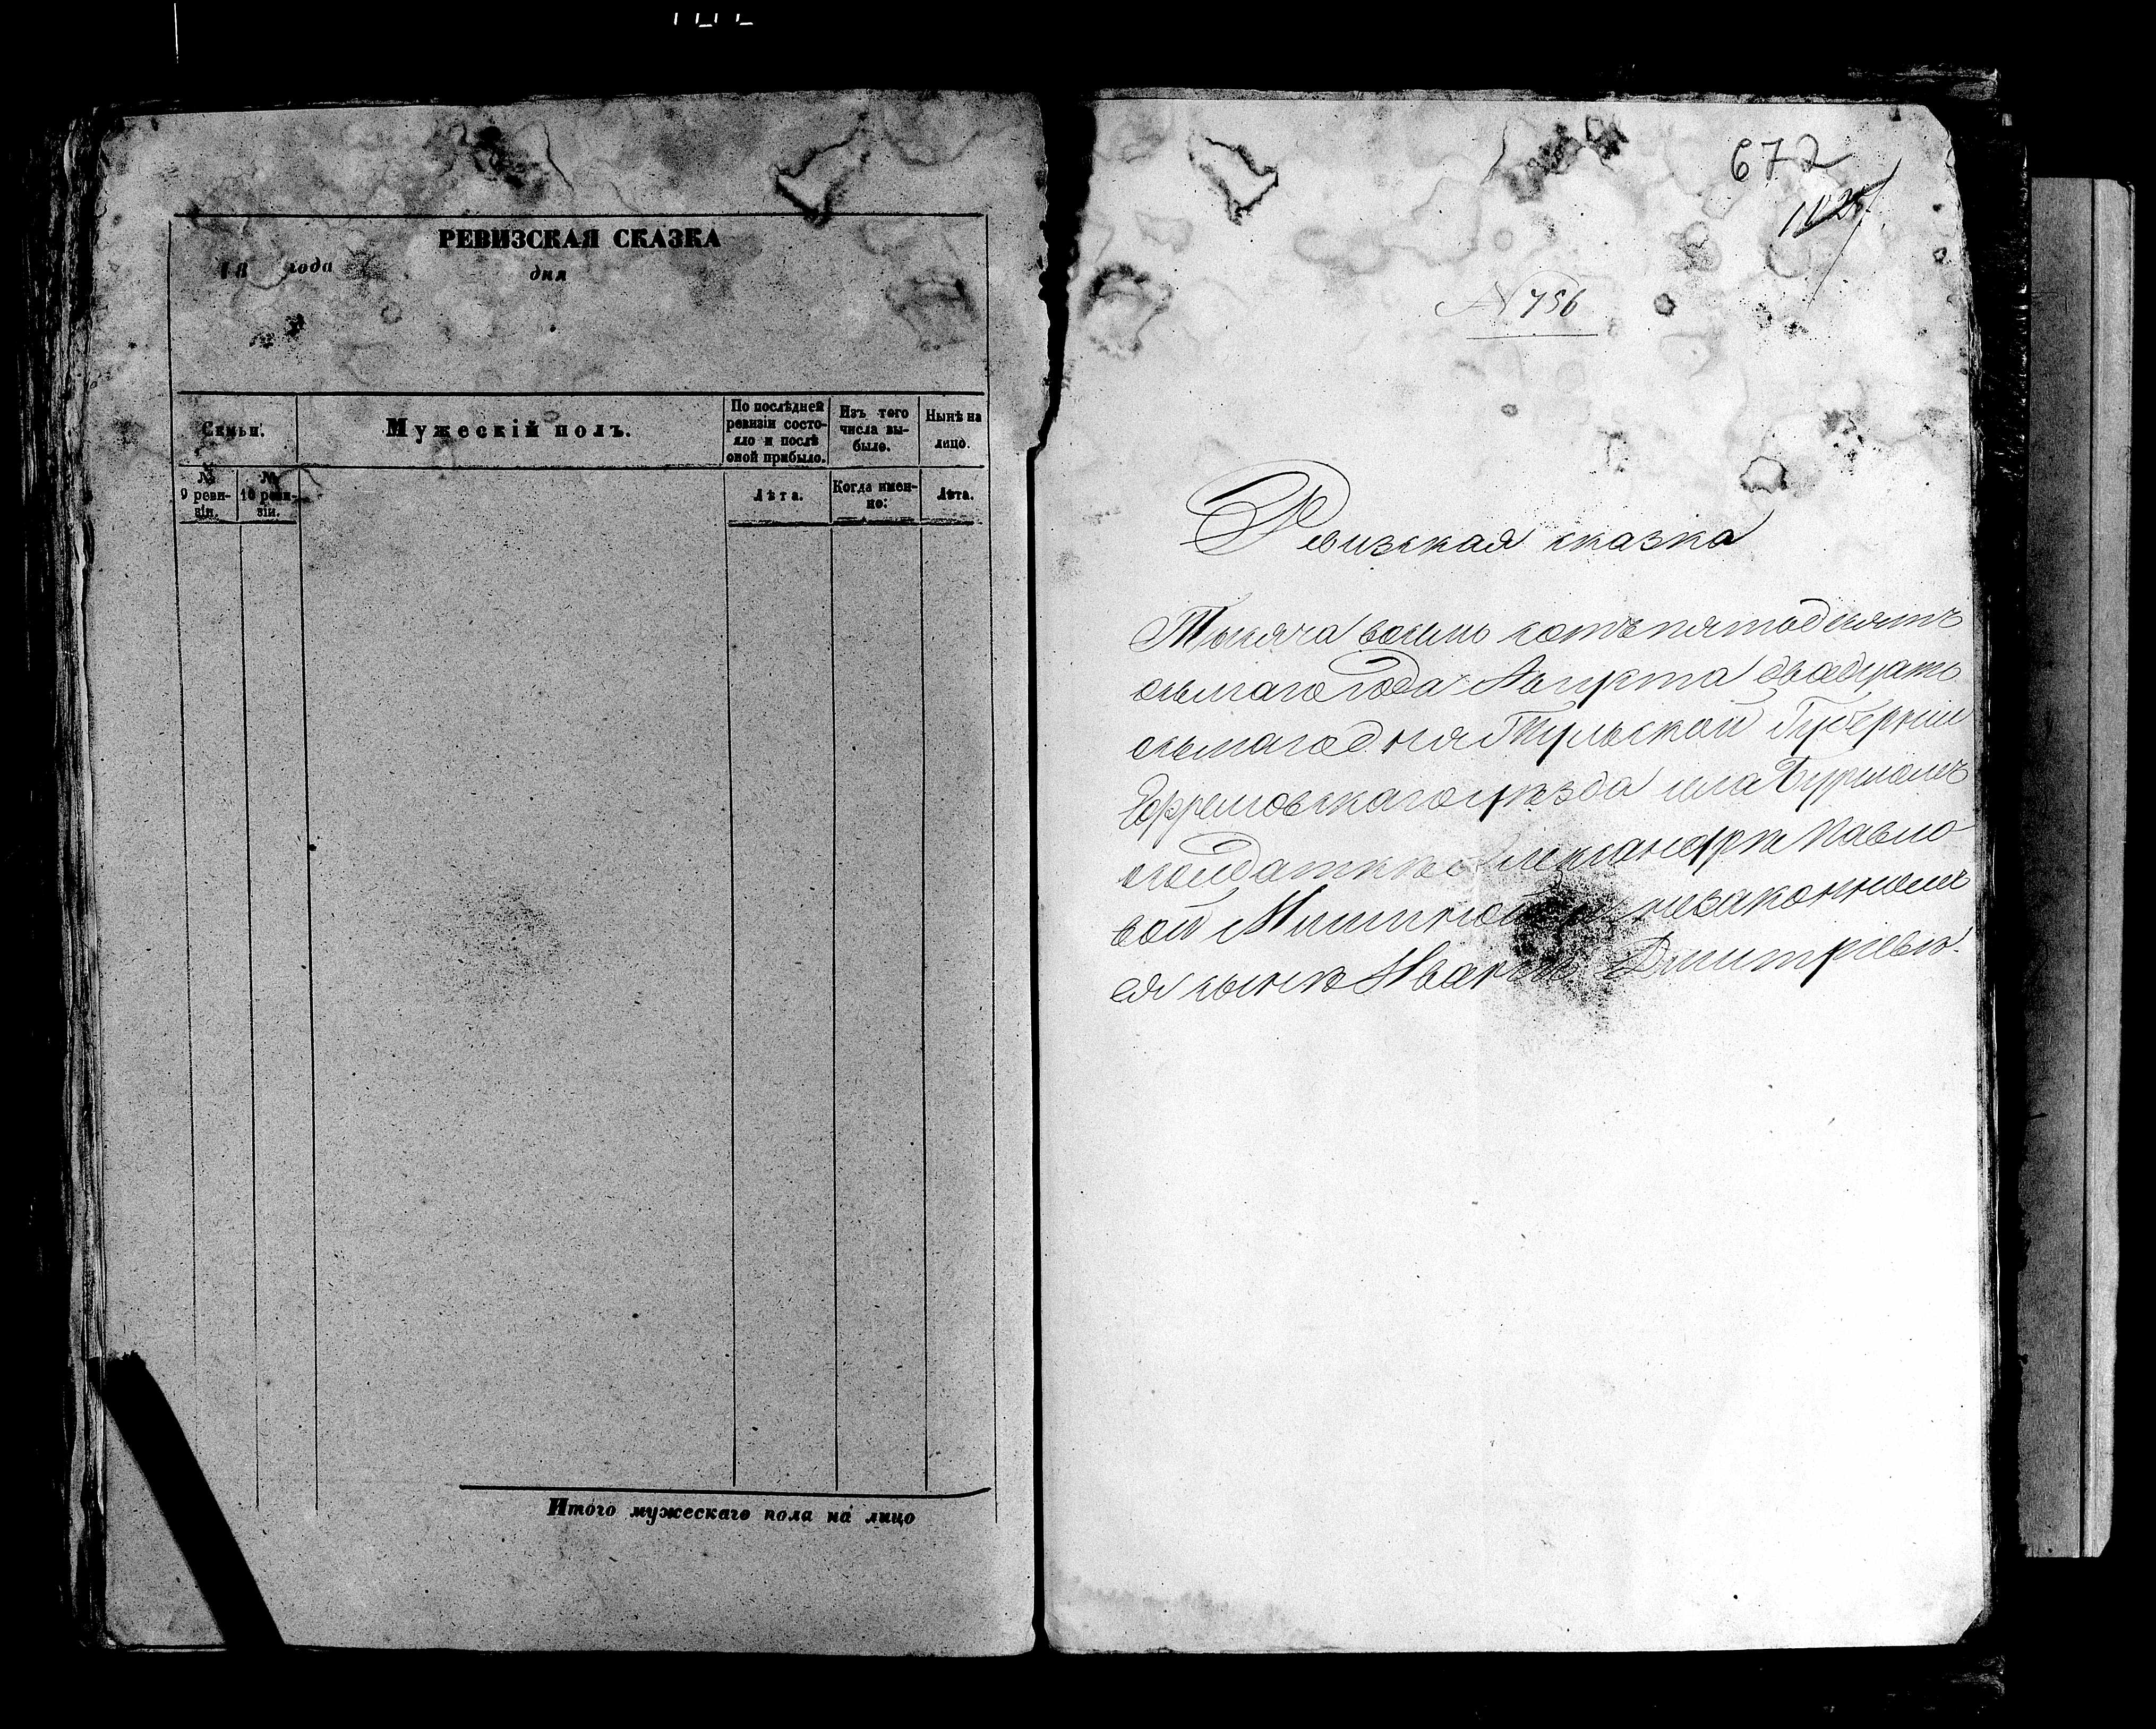 РЕВИЗСКАЯ СКАЗКА
18 года дня
Семьи.
Мужескій полъ.
По послѣдней ревизіи состо-
яло и послѣ оной прибыло.
Изъ того числа вы-
было.
Нынѣ на лицо.
№ 9 реви-
зіи.
№ 10 реви-
зіи.
Лѣта.
Когда имен-
но:
Лѣта.
Итого мужескаго пола на лицо
672
1025
N 756
Ревизская сказка
Тысяча восемь сотъ пятьдесятъ
седьмаго года Августа двадцать
седьмаго дня Тульской Губерніи
Ефремовскаго уѣзда села
солдаткѣ Александрѣ Павло-
вой Мишиной и незаконномъ
ея сынѣ Иванѣ Дмитріевѣ.